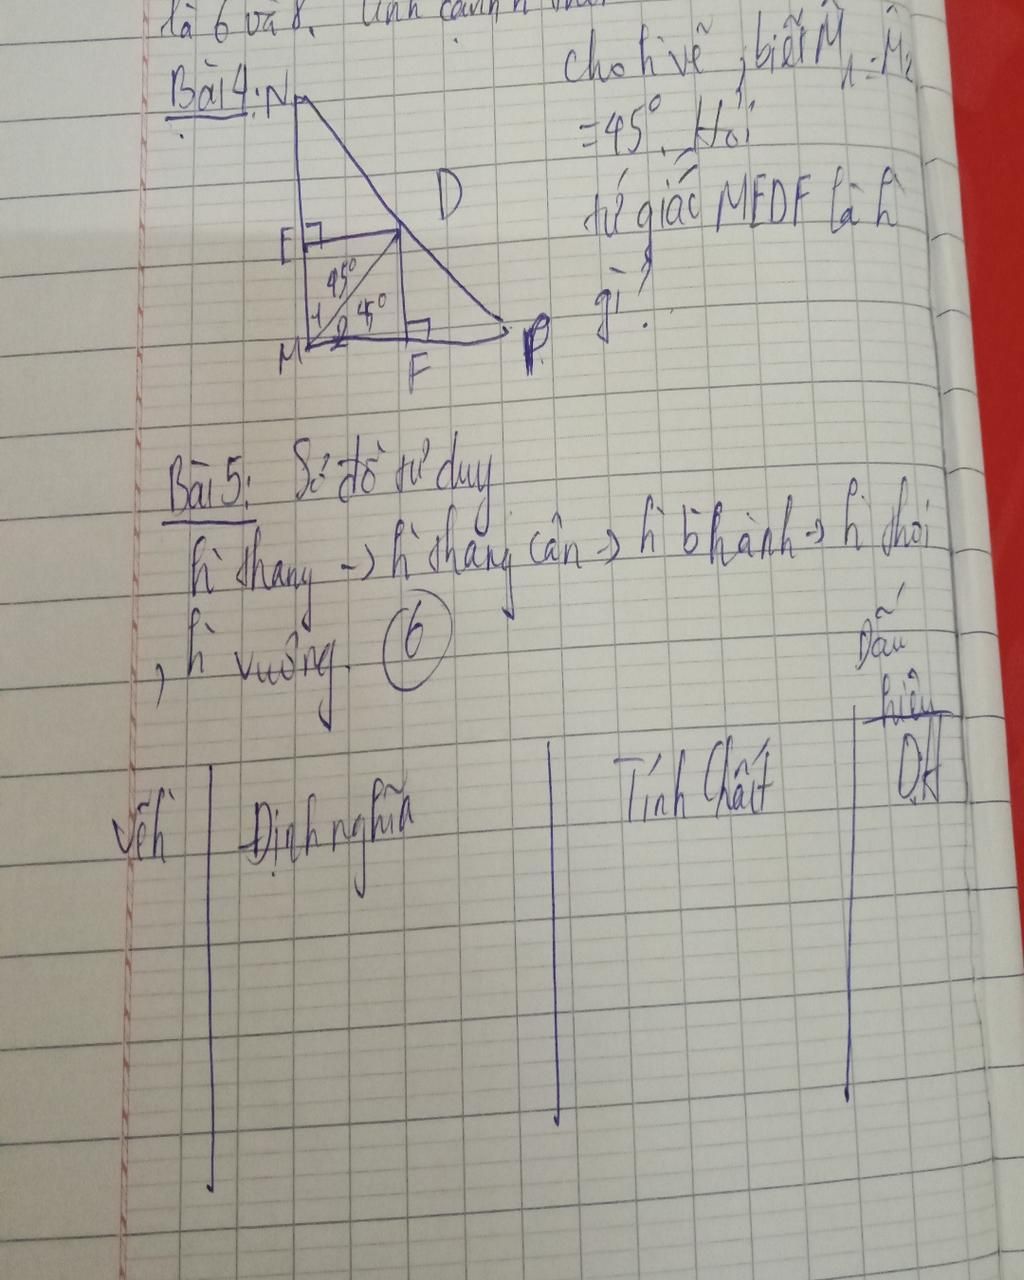 là 6 và 8. Tính cạnh h thoi
Bài 4:
cho h vẽ, biết M̂₁ = M̂₂
= 45°. Hỏi
tứ giác MEDF là h
gì?
N
D
E
45°
1
2
45°
M
F
P
Bài 5: Sơ đồ tư duy
h thang -> h thang cân -> h b hành -> h thoi
, h vuông. 6
Dấu
hiệu
Vẽ h
Định nghĩa
Tính chất
DH